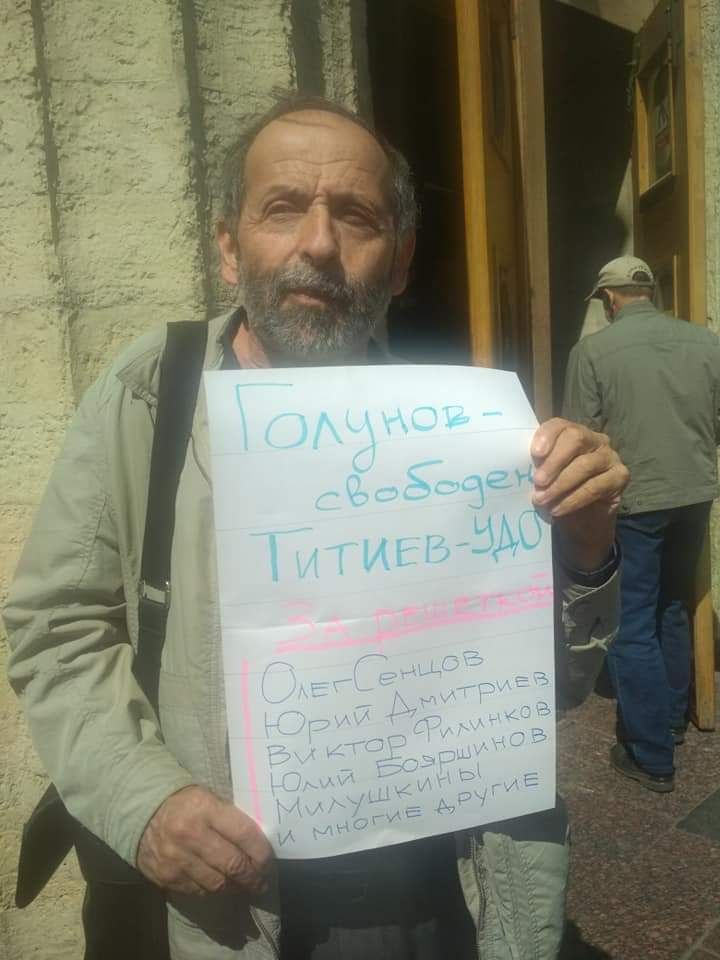 Голунов-
свободен
Титиев-УДО
За решеткой
Олег Сенцов
Юрий Дмитриев
Виктор Филинков
Юлий Бояршинов
Милушкины
и многие другие